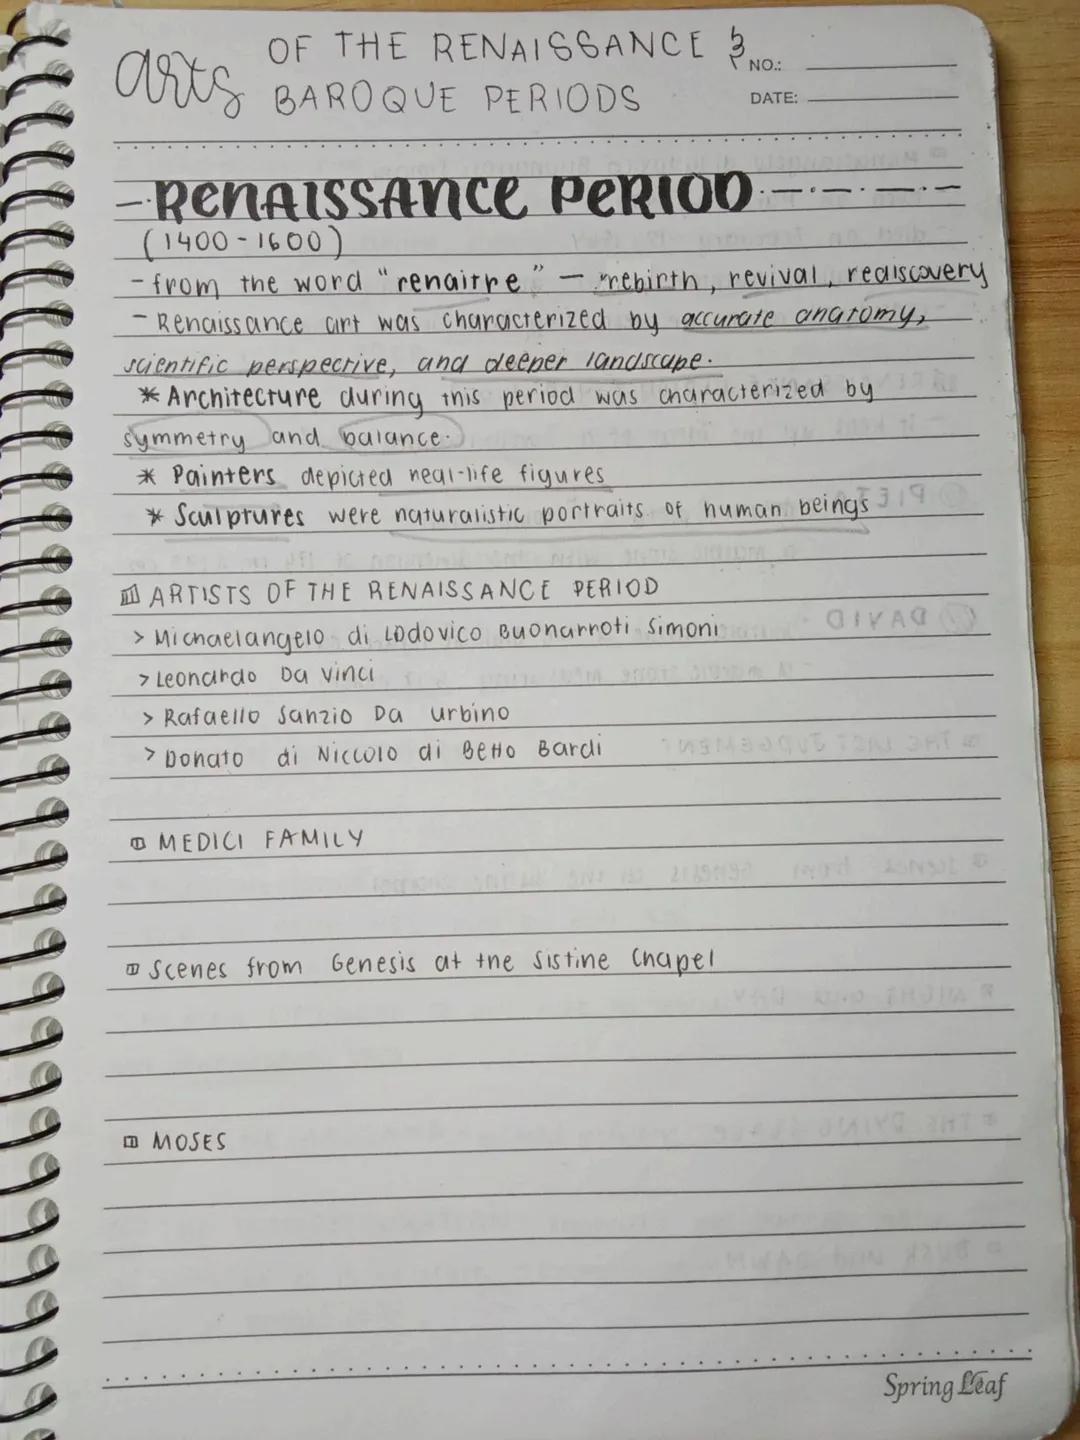 arts OF THE RENAISSANCE &
BAROQUE PERIODS
NO.:
DATE:
RENAISSANCE PERIOD
(1400-1600)
- from the word "renaitre" — rebirth, revival, rediscovery
- Renaissance art was characterized by accurate anatomy,
scientific perspective, and deeper landscape.
* Architecture during this period was characterized by
symmetry and balance.
* Painters depicted real-life figures
* Sculptures were naturalistic portraits of human beings
ARTISTS OF THE RENAISSANCE PERIOD
> Michaelangelo di Lodovico Buonarroti Simoni
> Leonardo Da Vinci
> Rafaello Sanzio Da urbino
> Donato di Niccolo di Betto Bardi
MEDICI FAMILY
Scenes from Genesis at the Sistine Chapel
MOSES
Spring Leaf